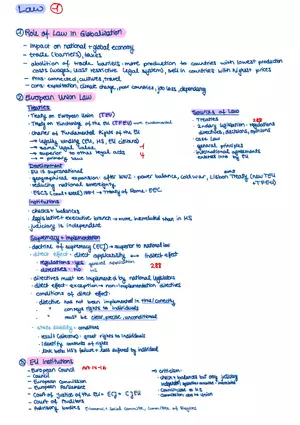 Law -1
① Role of Law in Globalisation
- impact on national + global economy
- trade (barriers), taxes
- abolition of trade barriers: more production in countries with lowest production
costs (wages, least restrictive legal system), sell in countries with highest prices
- pros: connected, cultures, travel
- cons: exploitation, climate change, poor countries, job loss, dependency
② European Union Law
Treaties
- Treaty on European Union (TEU)
- Treaty on Functioning of the EU (TFEU)
- Charter of Fundamental Rights of the EU
→ legally binding (EU, MS, EU citizens)
→ same legal value -1
→ superior to other legal acts 4
→ primary law
Sources of Law
- Treaties 288
- 2ndary legislation - regulations
directives, decisions, opinions
- case law
- general principles
- international agreements
entered into by EU
Development
- EU is supranational
- geographical expansion after WW2: power balance, cold war, Lisbon Treaty (new TEU
+ TFEU)
- reducing national sovereignty
- Treaty of Rome: EEC
Institutions
- checks + balances
- legislative + executive branch → more interrelated than in MS
- judiciary is independent
Supremacy + Implementation
- doctrine of supremacy (ECJ) → superior to national law
- direct effect: direct applicability
- regulations: yes general application
- directives: no 288
- directives must be implemented by national legislators
- direct effect - exception → non-implementation directives
- conditions of direct effect:
- directive has not been implemented in time/correctly
- " " confers rights to individuals
- " " must be clear, precise, unconditional
- state liability: conditions
- result (directive): grant rights to individuals
- identify contents of rights
- link between MS's failure + loss suffered by individual
③ EU Institutions
- European Council
- Council
- European Commission
- European Parliament
- Court of Justice of the EU = ECJ = CJEU
- Court of Auditors
- Advisory bodies Economic + Social Committee, Committee of Regions
→ criticism:
- checks + balances but only judiciary